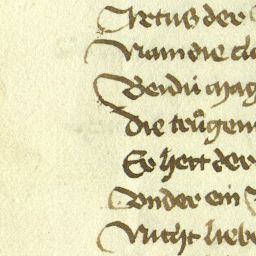 Artus der
Nam die cl
Beidu mag
die trůgem
Er hett der
Under ein
Nicht liebe